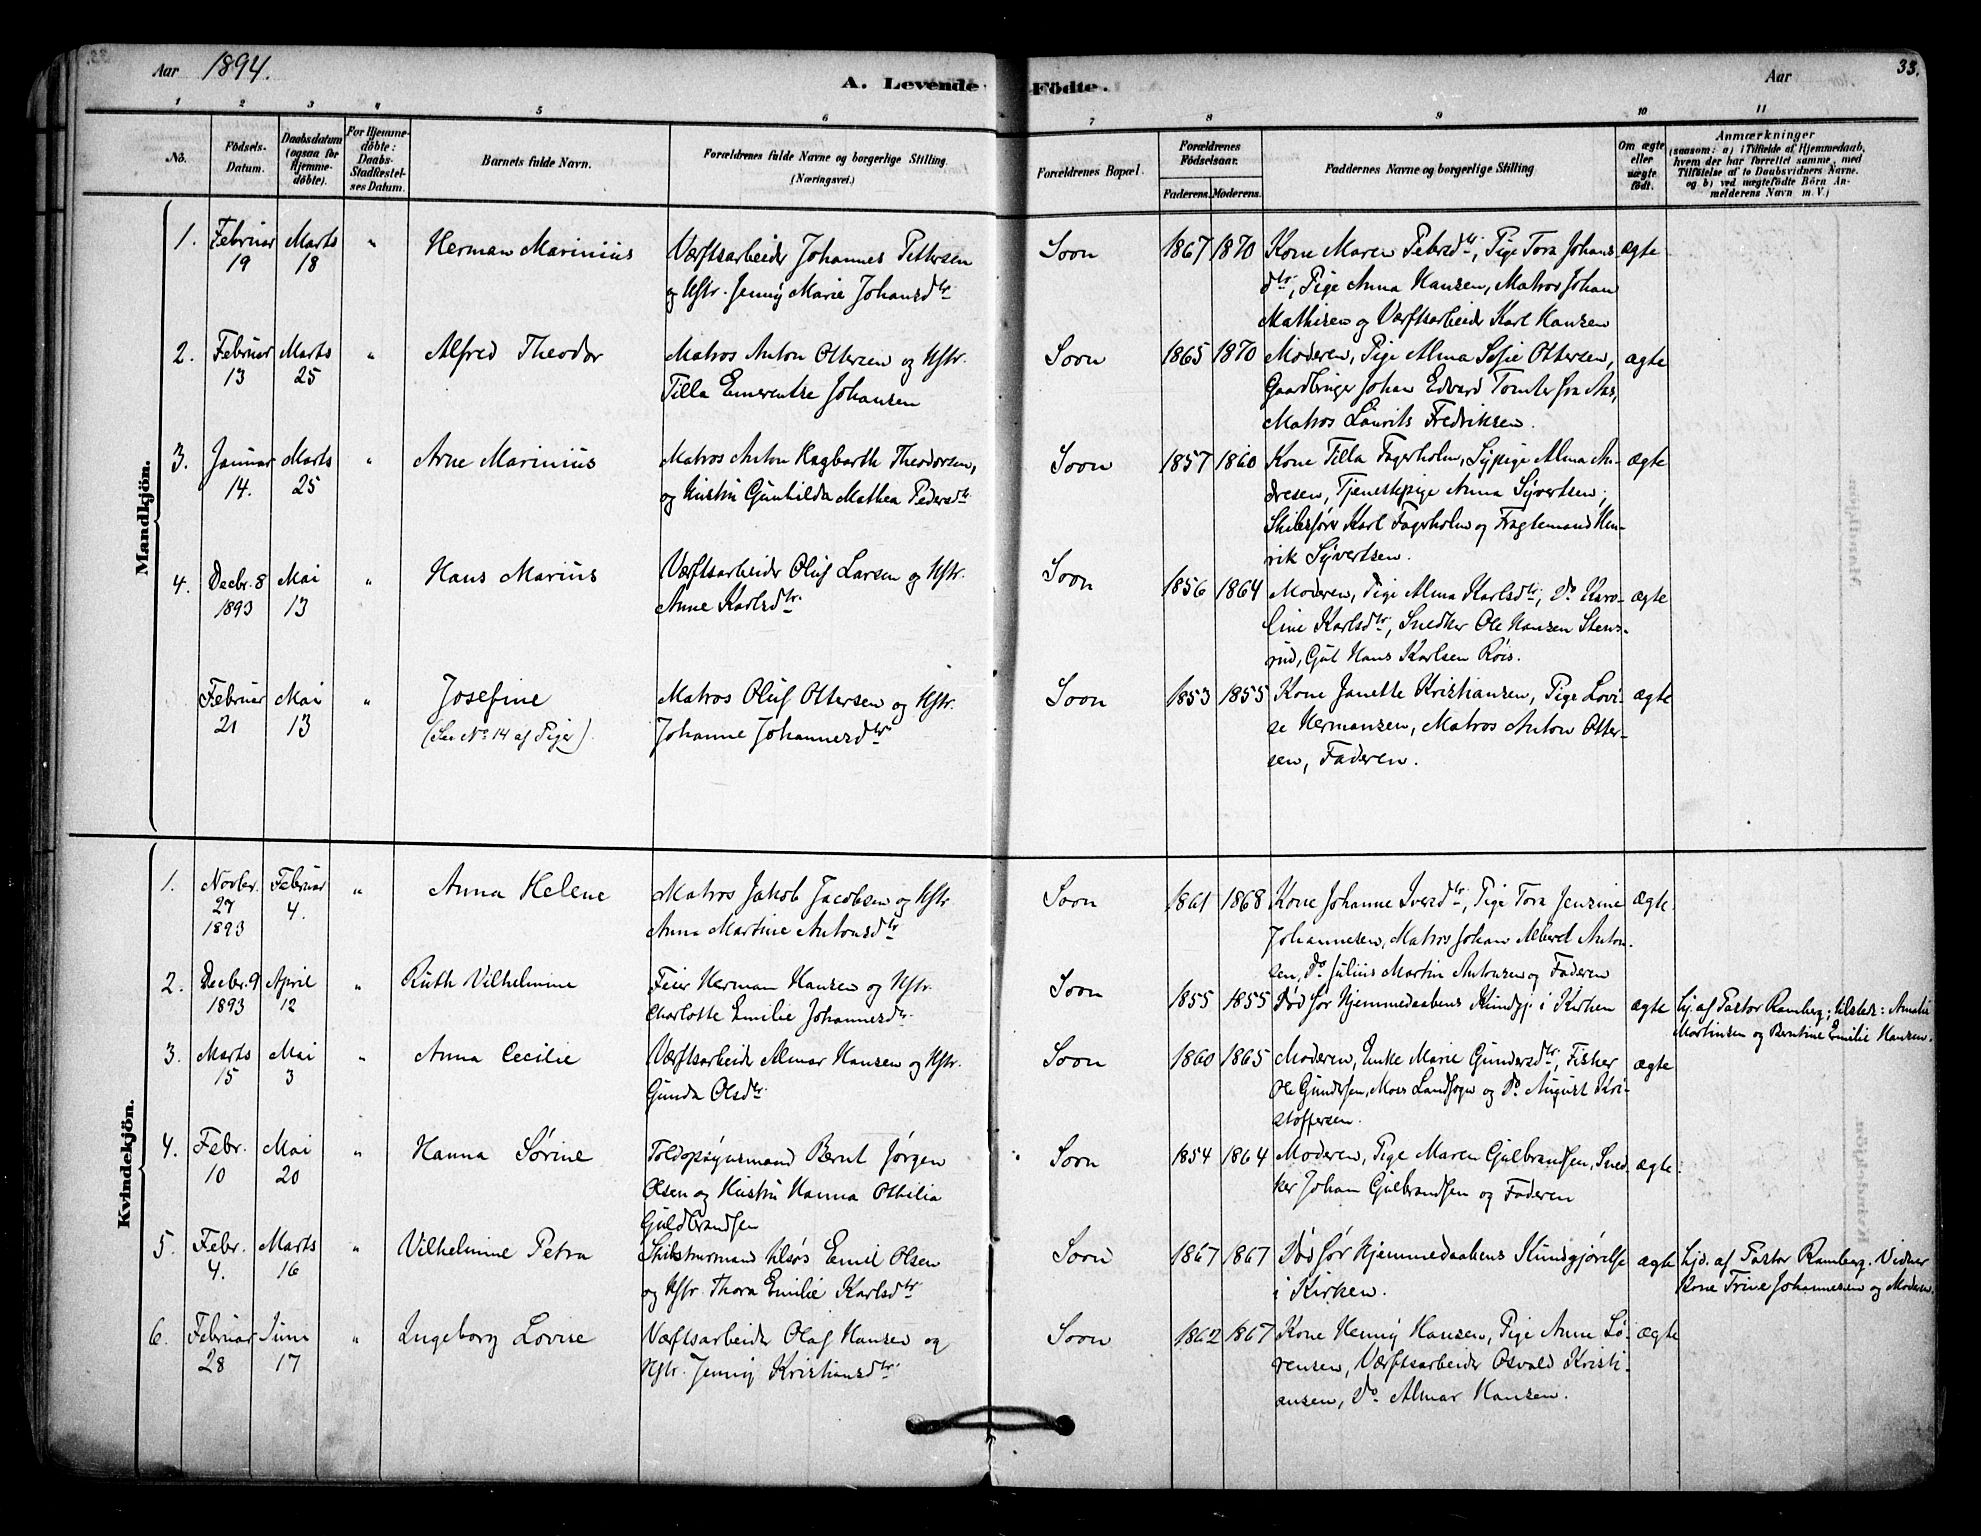 Aar 1894.
A. Levende Födte.
Aar
33.
1 2 3 4 5 6 7 8 9 10 11
No.
Födsels-Datum.
Daabsdatum (ogsaa for Hjemmedöbte).
For Hjemmedöbte: Daabs-Stadfæstelses Datum.
Barnets fulde Navn.
Forældrenes fulde Navne og borgerlige Stilling. (Næringsvei.)
Forældrenes Bopæl.
Forældrenes Födselsaar.
Faderens. Moderens.
Faddernes Navne og borgerlige Stilling
Om ægte eller uægte födt.
Anmærkninger
(saasom: a) i Tilfælde af Hjemmedaab, hvem der har forrettet samme, med Tilföielse af to Daabsvidners Navne. og b) ved uægtefödte Börn Anmelderens Navn m. V.)
Mandkjön.
1. Februar 19 Marts 18 " Herman Marinius
Værftsarbeider Johannes Pettersen
og Hstr. Jenny Marie Johansdtr
Soon 1867 1870
Kone Maren Petersdtr, Pige Tora Johans- ægte
dtr, Pige Anna Hansen, Matros Johan
Mathisen og Værftsarbeider Karl Hansen
2. Februar 13 Marts 25 " Alfred Theodor
Matros Anton Ottersen og Hstr.
Tilla Emerentse Johansen
Soon 1865 1870
Moderen, Pige Alma Sofie Ottersen, ægte
Gaardbruger Johan Edvard Tomter fra Aas,
Matros Laurits Fredriksen.
3. Januar 14. Marts 25 " Arne Marinius
Matros Anton Hagbarth Theodorsen,
og Hustru Gunhilda Mathea Pedersdtr
Soon 1857 1860
Kone Tilla Fagerholm, Sypige Alma An- ægte
dresen, Tjenestepige Anna Syvertsen,
Skibsfører Karl Fagerholm og Fragtemand Hen-
rik Syvertsen.
4. Decbr. 8 1893 Mai 13 " Hans Marius
Værftsarbeider Oluf Larsen og Hstr.
Anne Karlsdtr.
Soon 1856 1864
Moderen, Pige Alma Karlsdtr, Do Karo- ægte
line Karlsdtr, Snedker Ole Hansen Stens-
rud, Gut Hans Karlsen Røis.
Februar 21 Mai 13 " Josefine
(See No 14 af Piger)
Matros Oluf Ottersen og Hstr.
Johanne Johannesdtr
Soon 1853 1855
Kone Janette Kristiansen, Pige Lovi- ægte
se Hermansen, Matros Anton Otter-
sen, Faderen.
Kvindekjön.
1. Novbr. 27 1893 Februar 4. " Anna Helene
Matros Jakob Jacobsen og Hstr.
Anna Martine Antonsdtr
Soon 1861 1868
Kone Johanne Iversdtr, Pige Tora Jensine ægte.
Johannesen, Matros Johan Albert Anton-
sen, Do Julius Martin Antonsen og Faderen
2. Decbr. 9 1893 April 12 " Ruth Vilhelmine
Feier Herman Hansen og Hstr.
Charlotte Emilie Johannesdtr.
Soon 1855 1855
Død før Hjemmedaabens Kundgj. i Kirken ægte
hj. af Pastor Ramberg; tilsteds: Amalie
Martinsen og Bentine Emilie Hansen.
3. Marts 15 Mai 3 " Anna Cecilie
Værftsarbeider Almar Hansen og Hstr.
Gunda Olsdtr.
Soon 1860 1865
Moderen, Enke Marie Gundersdtr, Fisker ægte
Ole Gundersen, Moss Landsogn og Do August Kri-
stoffersen.
4. Febr. 10 Mai 20 " Hanna Sørine
Toldopsynsmand Bernt Jørgen
Olsen og Hustru Hanna Othilia
Guldbrandsen
Soon 1854 1864
Moderen, Pige Maren Gulbrandsen, Sned- ægte.
ker Johan Gulbrandsen og Faderen
5. Febr. 4. Marts 16 " Vilhelmine Petra
Skibsturmand tilsøs Emil Olsen
og Hstr. Thora Emilie Karlsdtr
Soon 1867 1867
Død før Hjemmedaabens Kundgjørelse ægte
i Kirken.
hjd. af Pastor Ramberg. Vidner
Kone Trine Johannesen og Moderen.
6. Februar 28 Juni 17 " Ingeborg Lovise
Værftsarbeider Olaf Hansen og
Hstr. Jenny Kristiansdtr.
Soon 1862 1867
Kone Henny Hansen, Pige Anne Sø- ægte
rensen, Værftsarbeider Osvald Kristi-
ansen, Do Almar Hansen.